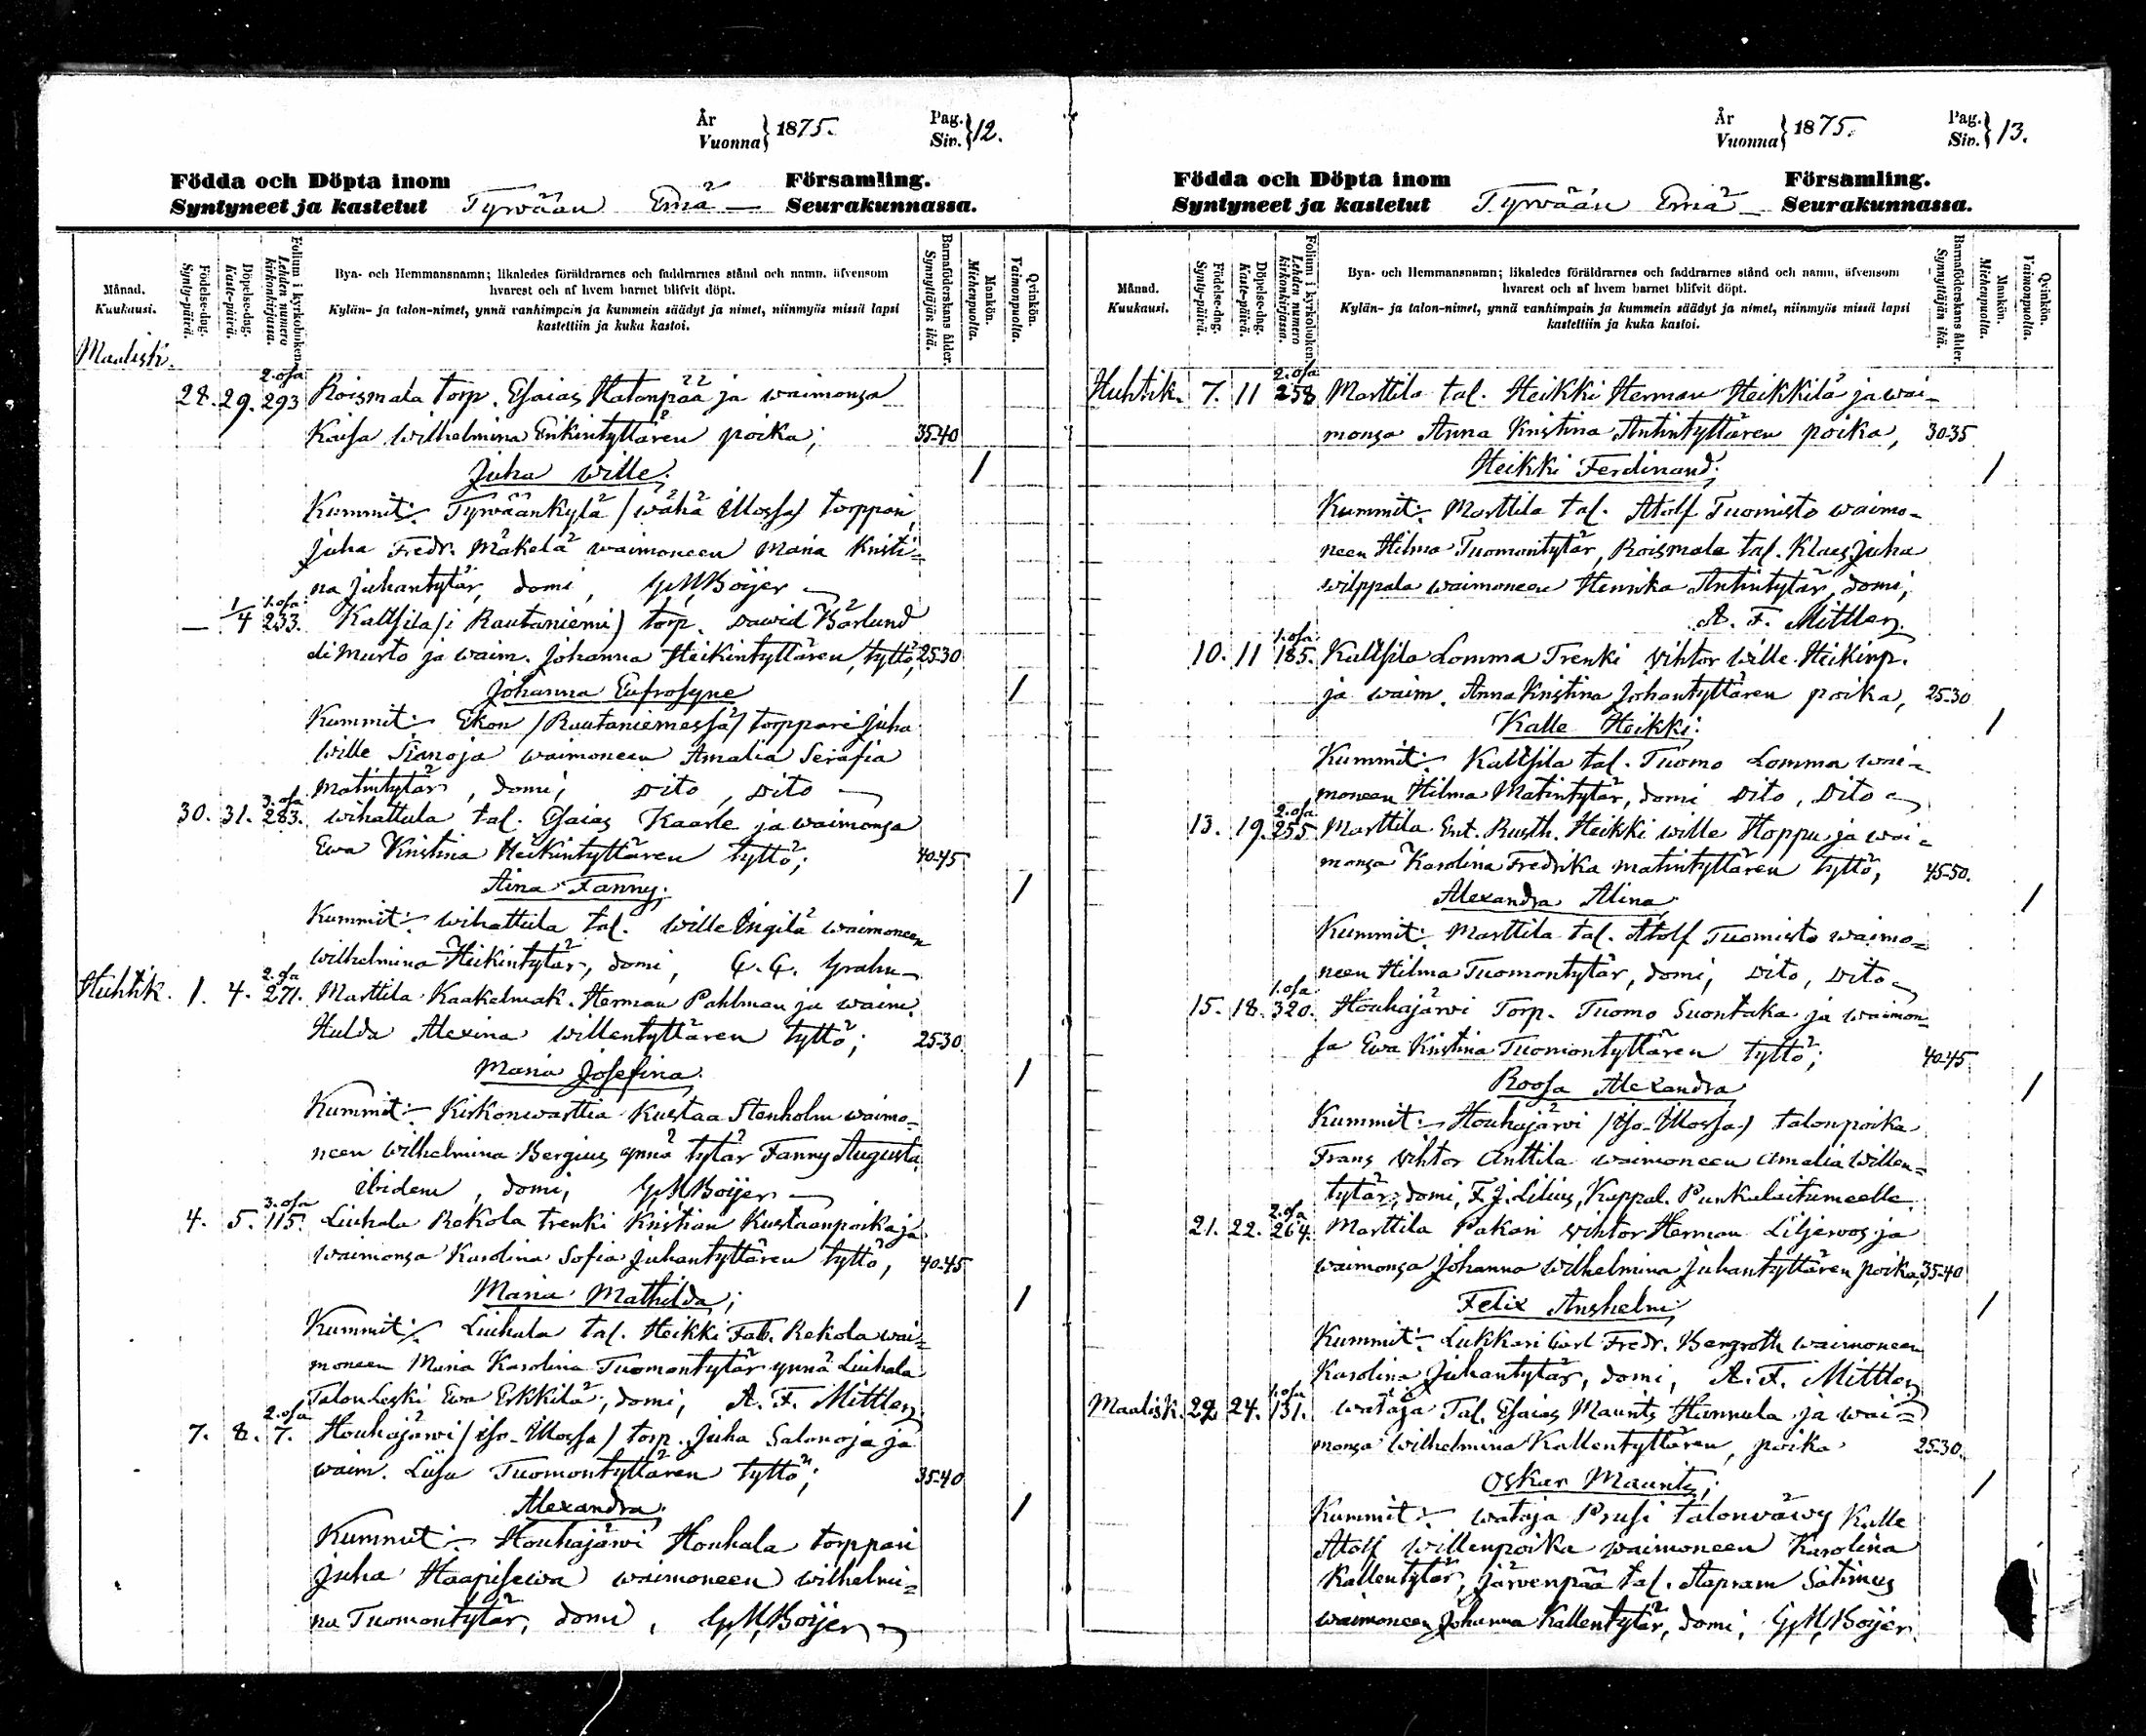 År
Vuonna } 1875.
Pag.
Siv. } 12.
Födda och Döpta inom Församling.
Syntyneet ja kastetut Tyrvään Emä — Seurakunnassa.
Månad.
Kuukausi.
Födelse-dag.
Synty-päivä.
Döpelse-dag.
Kaste-päivä.
Folium i kyrkoboken.
Lehden numero
kirkonkirjassa.
Bya- och Hemmansnamn; likaledes föräldrarnes och faddrarnes stånd och namn, äfvensom
hvarest och af hvem barnet blifvit döpt.
Kylän- ja talon-nimet, ynnä vanhimpain ja kummein säädyt ja nimet, niinmyös missä lapsi
kastettiin ja kuka kastoi.
Barnaföderskans ålder.
Synnyttäjän ikä.
Mankön.
Miehenpuolia.
Qvinkön.
Vaimonpuolia.
Maalisk.
2. osa
28. 29. 293 Roismala torp. Esaias Hatanpää ja waimonsa
Kaisa Wilhelmina Erikintyttären poika; 35-40
Juha Wille; /
Kummit:- Tyrväänkylä (Wähä Ulossa) torppari
Juha Fredr. Mäkelä waimoneen Maria Kristi=
na Juhantytär, domi, G.M. Boijer
1. osa
— 1/4 233. Kaltsila (i Rautaniemi) torp. Dawid Bärlund
eli Murto ja waim. Johanna Heikintyttären, tyttö, 25-30
Johanna Eufrosyne /
Kummit:- Ekon (Rautaniemessä) torppari Juha
Wille Sianoja waimoneen Amalia Serafia
Matintytär, domi; dito, dito
3. osa
30. 31. 283. Wihattula tal. Esaias Kaarle ja waimonsa
Ewa Kristina Heikintyttären tyttö; 40-45
Aina Fanny. /
Kummit:- Wihattula tal. Wille Ingilä waimoneen
Wilhelmina Heikintytär, domi, G. G. Grahn
2. osa
Huhtik. 1. 4. 271. Marttila Kaakelmak. Herman Pahlman ja waim.
Hulda Alexina Willentyttären tyttö; 25-30.
Maria Josefina. /
Kummit:- Kirkonwarttia Kustaa Stenholm waimo=
neen Wilhelmina Bergius ynnä tytär Fanny Augusta
ibidem, domi, G.M. Boijer
3. osa
4. 5. 115. Liuhala Rekola trenki Kristian Kustaanpoika ja
waimonsa Karolina Sofia Juhantyttären tyttö, 40-45
Maria Mathilda; /
Kummit:- Liuhala tal. Heikki Fab. Rekola wai=
moneen Maria Karolina Tuomontytär ynnä Liuhala
Talon Leski Ewa Erkkilä; domi, A. F. Mittler
2. osa
7. 8. 7. Houhajärwi (Iso-Ulossa) torp. Juha Salonoja ja
waim. Liisa Tuomontyttären tyttö; 35-40
Alexandra. /
Kummit:- Houhajärwi Houhala torppari
Juha Haapisewa waimoneen Wilhelmi=
na Tuomontytär, domi, G.M. Boijer
År
Vuonna } 1875.
Pag.
Siv. } 13.
Födda och Döpta inom Församling.
Syntyneet ja kastetut Tyrvään Emä — Seurakunnassa.
Månad.
Kuukausi.
Födelse-dag.
Synty-päivä.
Döpelse-dag.
Kaste-päivä.
Folium i kyrkoboken.
Lehden numero
kirkonkirjassa.
Bya- och Hemmansnamn; likaledes föräldrarnes och faddrarnes stånd och namn, äfvensom
hvarest och af hvem barnet blifvit döpt.
Kylän- ja talon-nimet, ynnä vanhimpain ja kummein säädyt ja nimet, niinmyös missä lapsi
kastettiin ja kuka kastoi.
Barnaföderskans ålder.
Synnyttäjän ikä.
Mankön.
Miehenpuolia.
Qvinkön.
Vaimonpuolia.
2. osa
Huhtik. 7. 11 258 Marttila tal. Heikki Herman Heikkilä ja wai=
monsa Anna Kristina Antintyttären poika, 30-35
Heikki Ferdinand; /
Kummit:- Marttila tal. Atolf Tuomisto waimo=
neen Hilma Tuomontytär, Roismala tal. Klaes Juha
Wilppala waimoneen Henrika Antintytär, domi;
A. F. Mittler.
1. osa
10. 11 185. Kaltsila Lomma Trenki Wihtor Wille Heikinp.
ja waim. Anna Kristina Johantyttären poika, 25-30
Kalle Heikki; /
Kummit:- Kaltsila tal. Tuomo Lomma wai=
moneen Hilma Matintytär, domi dito, dito
2. osa
13. 19. 255. Marttila Ent. Rusth. Heikki Wille Hoppu ja wai=
monsa Karolina Fredrika Matintyttären tyttö, 45-50.
Alexandra Alina; /
Kummit:- Marttila tal. Atolf Tuomisto waimo=
neen Hilma Tuomontytär, domi, dito, dito
1. osa
15. 18. 320. Houhajärwi Torp. Tuomo Suontaka ja waimon=
sa Ewa Kristina Tuomontyttären tyttö; 40-45
Roosa Alexandra /
Kummit:- Houhajärwi (Iso-Ulossa) talonpoika
Frans Wihtor Anttila waimoneen Amalia Willen=
tytär, domi, F. J. Lilius, Kappal. Punkalaitumeelle.
2. osa
21. 22. 264. Marttila Pakari Wihtor Herman Liljeroos ja
waimonsa Johanna Wilhelmina Juhantyttären poika, 35-40
Felix Anshelm; /
Kummit:- Lukkari Carl Fredr. Bergroth waimoneen
Karolina Juhantytär, domi, A. F. Mittler
1. osa
Maalisk. 22. 24. 131. Wataja Tal. Esaias Maurits Hannula ja wai=
monsa Wilhelmina Kallentyttären, poika 25-30.
Oskar Maurits; /
Kummit:- Wataja Prusi talonwäwy Kalle
Atolf Willenpoika waimoneen Karolina
Kallentytär, Järwenpää tal. Aapram Sätimus
waimoneen Johanna Kallentytär, domi, G.M. Boijer.